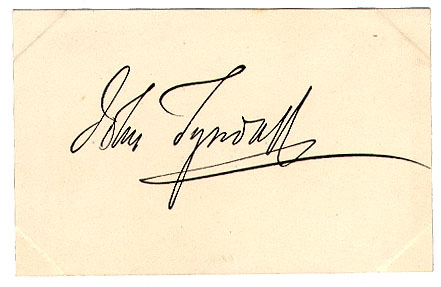 John Tyndall